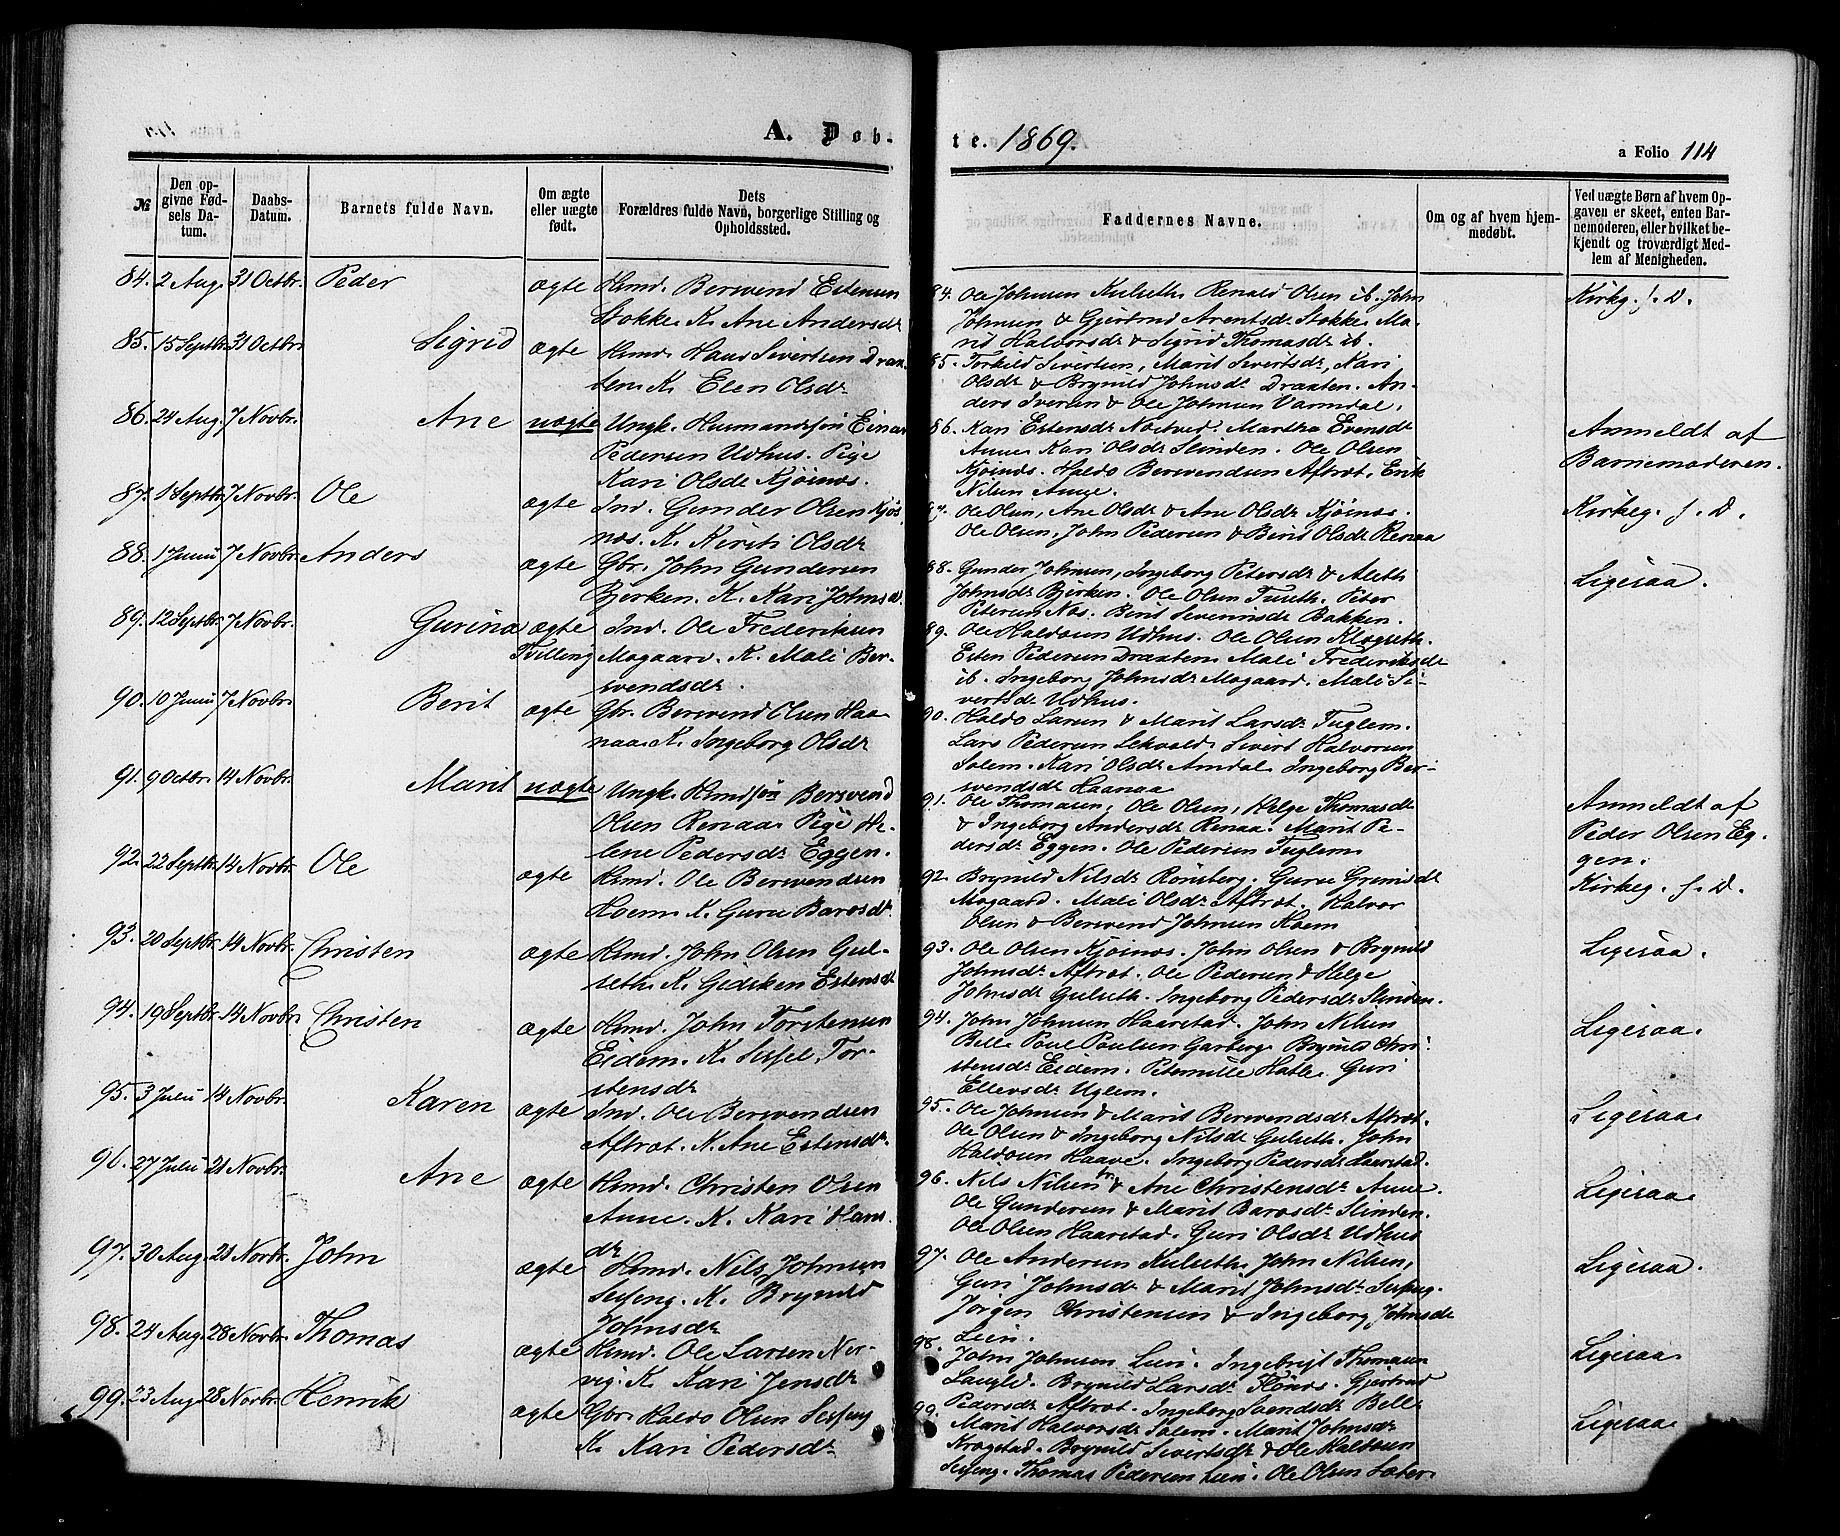 A. Døb-
te. 1869.
a Folio 114
№
Den op-
givne Fød-
sels Da-
tum.
Daabs-
Datum.
Barnets fulde Navn.
Om ægte
eller uægte
født.
Dets
Forældres fulde Navn, borgerlige Stilling og
Opholdssted.
Faddernes Navne.
Om og af hvem hjem-
medøbt.
Ved uægte Børn af hvem Op-
gaven er skeet, enten Bar-
nemoderen, eller hvilket be-
kjendt og troværdigt Med-
lem af Menigheden.
84. 2 Aug. 31 Octbr. Peder ægte Hmd. Bersvend Estensen
Stokke K. Ane Andersdr
84. Ole Johnsen Kulseth Renald Olsen ib. John
Johnsen & Gjertrud Arentsdr Stokke Ma-
rit Halvorsdr & Sigrid Thomasdr ib.
Kirkg. f. D.
85. 15 Septbr. 31 Octbr. Sigrid ægte Hmd. Hans Sivertsen Drax-
ten K. Elen Olsdr
85. Torkild Sivertsen, Marit Sivertsdr, Kari
Olsdr & Brynild Johnsdr Draxten. An-
ders Iversen & Ole Johnsen Varmdal.
86. 24 Aug. 7 Novbr. Ane uægte Ungk. Husmandssøn Einar
Pedersen Udhus. Pige
Kari Olsdr Kjøsnæs.
86. Kari Estensdr Nostved. Martha Evensdr
Aune Kari Olsdr Slinden. Ole Olsen
Kjøsnæs. Haldo Bersvendsen Aftret. Erik
Nilsen Aune.
Anmeldt af
Barnemoderen.
87. 1 Septbr. 7 Novbr. Ole ægte Ind. Gunder Olsen Kjøs-
næs. K. Kirsti Olsdr
87. Ole Olsen, Ane Olsdr & Ane Olsdr Kjøsnæs.
Ole Olsen, John Pedersen & Berit Olsdr Renaa
Kirkeg. f. D.
88. 1 Juni 7 Novbr. Anders ægte Gbr. John Gundersen
Bjerken. K. Kari Johnsd.
88. Gunder Johnsen, Ingeborg Petersdr & Aleth
Johnsdr Bjerken. Ole Olsen Tuseth. Peter
Petersen Næs. Berit Severinsdr Bakken.
Ligesaa.
89. 12 Septbr. 7 Novbr. Gurina ægte Ind. Ole Frederiksen
Tvilling Mogaard. K. Mali Ber-
svendsdr.
89. Ole Haldosen Udhus. Ole Olsen Klegseth.
Esten Pedersen Draxten Mali Frederiksdr
ib. Ingeborg Johnsdr Mogaard. Mali Si-
vertsdr Udhus.
90. 10 Juni 7 Novbr. Berit ægte Gbr. Bersvend Olsen Haa-
naa K. Ingeborg Olsdr
90. Haldo Larsen & Marit Larsdr Fuglem.
Lars Pedersen Lekvold. Sivert Halvorsen
Solem. Kari Olsdr Amdal. Ingeborg Ber-
svendsdr Haanaa
91. 9 Octbr. 14 Novbr. Marit uægte Ungk. Hmdsøn Bersvend
Olsen Renaa. Pige He-
lene Pedersdr Eggen.
91. Ole Thomasen, Ole Olsen, Helge Thomasdr
& Ingeborg Andersdr Renaa. Marit Pe-
dersdr Eggen. Ole Pedersen Fuglem
Anmeldt af
Peder Olsen Eg-
gen.
92. 22 Septbr. 14 Novbr. Ole ægte Hmd. Ole Bersvendsen
Hoem K. Guru Barosdr.
92. Brynild Nilsdr Rønsberg. Guru Grimsdr
Mogaard. Mali Olsdr Aftret. Halvor
Olsen & Bersvend Johnsen Hoem
Kirkeg. f. D.
93. 20 Septbr. 14 Novbr. Christen ægte Hmd. John Olsen Gul-
seth. K. Gidsken Estensdr
93. Ole Olsen Kjøsnæs. John Olsen & Brynild
Johnsdr Aftret. Ole Pedersen & Helge
Johnsdr Gulseth. Ingeborg Pedersdr Slinden.
Ligesaa.
94. 19 Septbr. 14 Novbr. Christen ægte Hmd. John Torstensen
Eidem. K. Sissel Tor-
stensdr
94. John Johnsen Haarstad. John Nilsen
Belle Paul Paulsen Garberg. Brynild Chri-
stensdr Eidem. Peternille Hatle. Guri
Ellevsdr Uglem.
Ligesaa.
95. 3 Juli 14 Novbr. Karen ægte Ind. Ole Bersvendsen
Aftret. K. Ane Estensdr.
95. Ole Johnsen & Marit Bersvendsdr Aftret.
Ole Olsen & Ingeborg Nilsdr Gulseth. John
Haldosen Haave. Ingeborg Pedersdr Haarstad.
Ligesaa
96. 27 Juli 21 Novbr. Ane ægte Hmd. Christen Olsen
Aune. K. Kari Hans
dr
96. Nils Nilsen & Ane Christensdr Aune.
Ole Gundersen & Marit Barosdr Slinden.
Ole Olsen Haarstad. Guri Olsdr Udhus
Ligesaa
97. 30 Aug. 21 Novbr. John ægte Hmd. Nils Johnsen
Sesseng. K. Brynild
Johnsdr
97. Ole Andersen Kulseth. John Nilsen,
Guri Johnsdr & Marit Johnsdr Sesseng.
Jørgen Christensen & Ingeborg Johnsdr
Lien.
Ligesaa.
98. 24 Aug. 28 Novbr. Thomas ægte Hmd. Ole Larsen Ner-
vig. K. Kari Jensdr
98. John Johnsen Lien. Ingebrigt Thomasen
Brynild Larsdr Gjertrud
Pedersdr Aftret. Ingeborg Svendsdr Belle
Ligesaa
99. 23 Aug. 28 Novbr. Henrik ægte Gbr. Haldo Olsen Sesseng
K. Kari Pedersdr
99. Marit Halvorsdr Solem. Marit Johnsdr
Krogstad. Brynild Sivertsdr & Ole Haldosen
Sesseng. Thomas Pedersen Lien. Ole Olsen Sæter.
Ligesaa